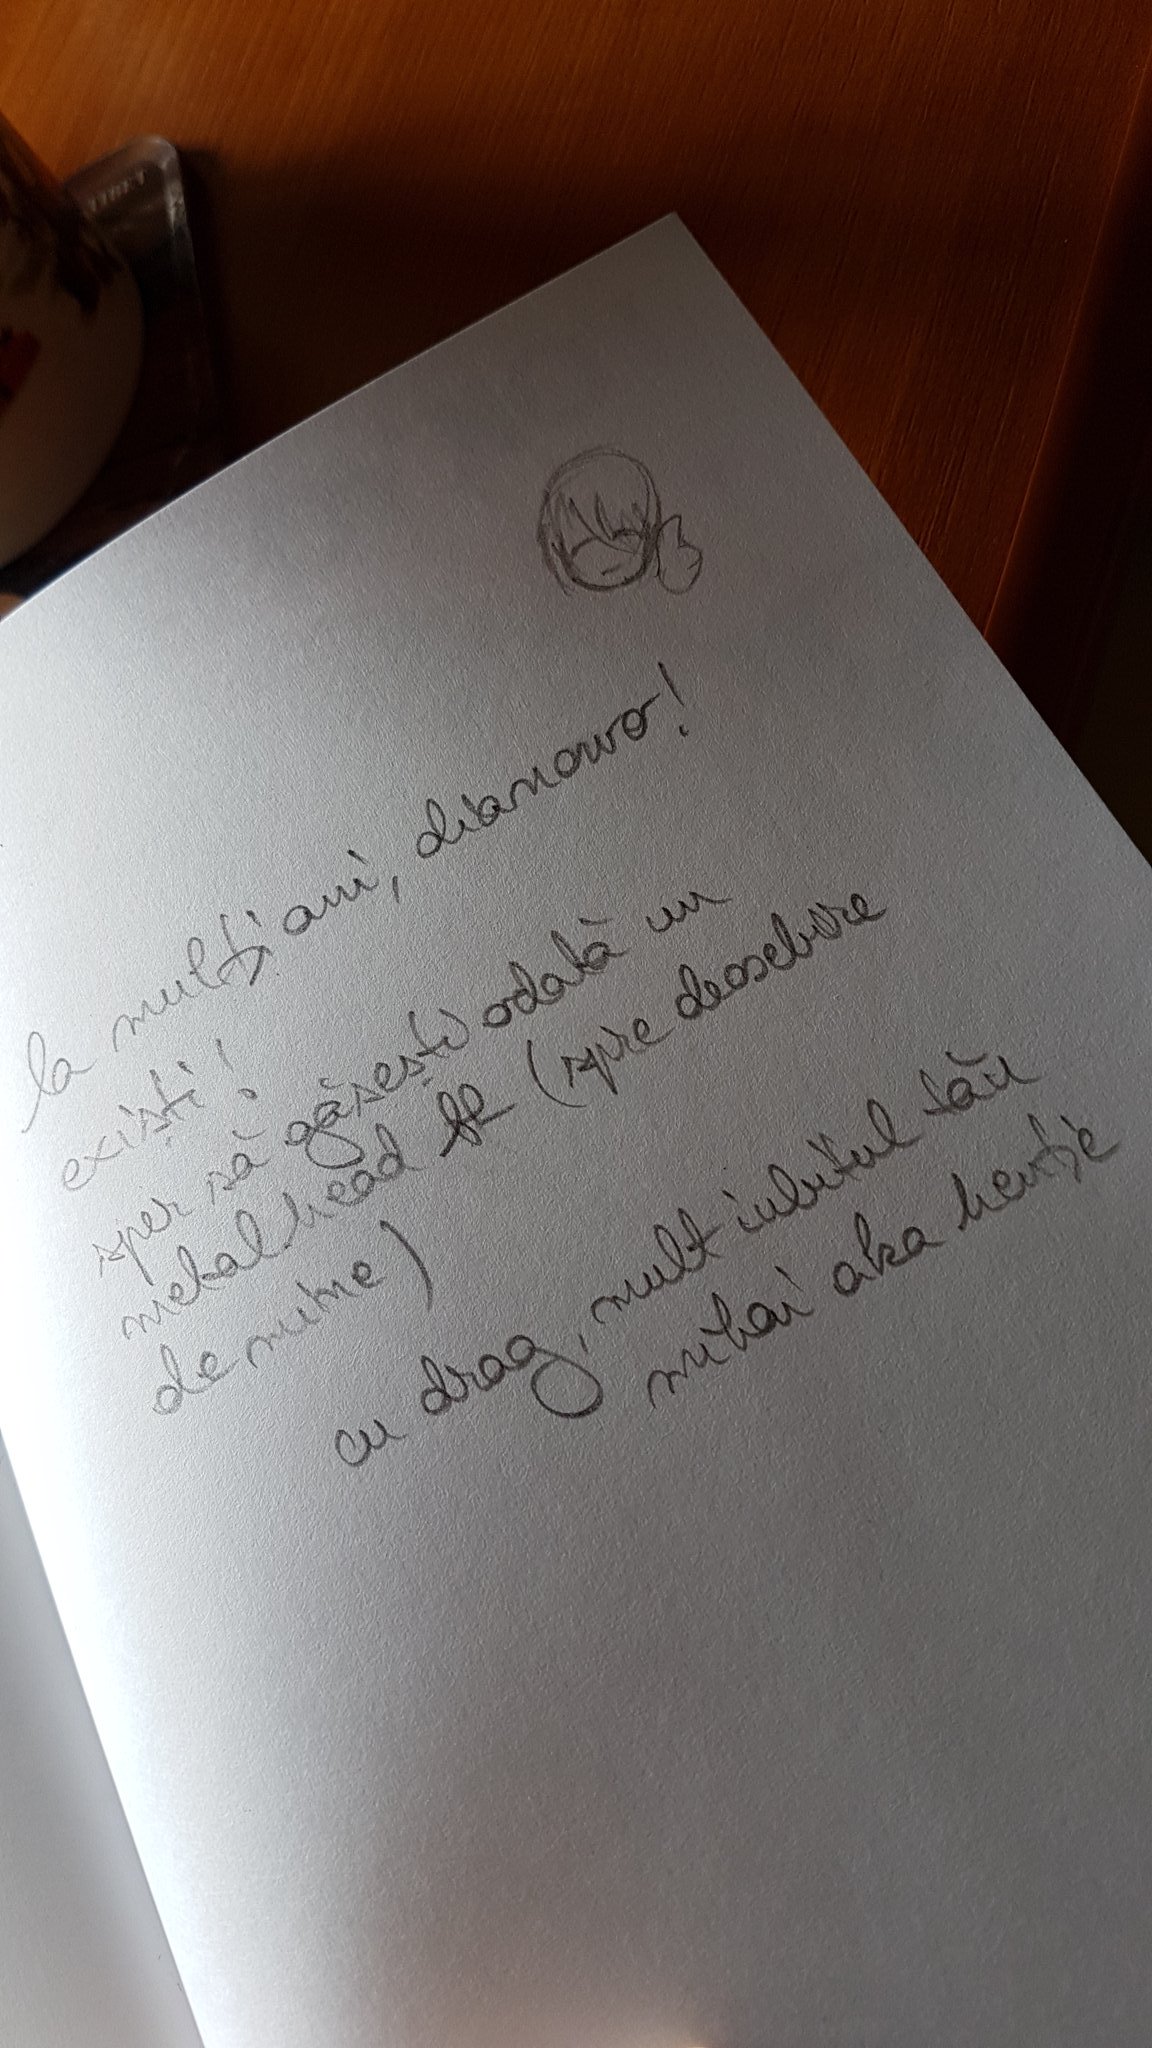 la mulți ani, dianowo!
existi!
sper să găsești odată un
metalhead (spre deosebire
de mine)
cu drag, mult iubitul tău
mihai aka hentie